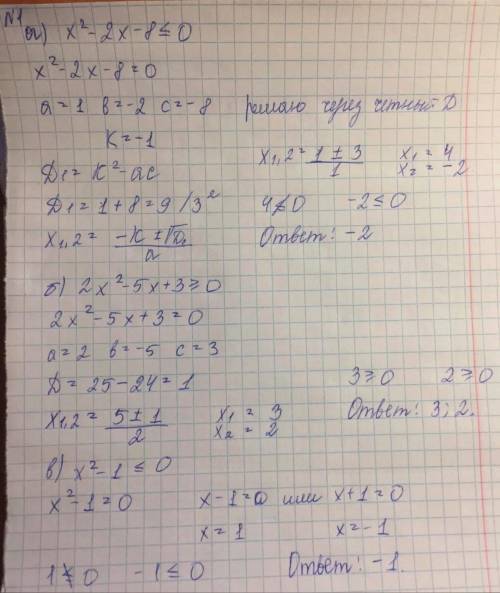 №1
а) x²-2x-8≤0
x²-2x-8=0
a=1 b=-2 c=-8 решаю через четный D
K=-1
D₁=K²-ac
x₁,₂=(1±3)/1 x₁=4
x₂=-2
D₁=1+8=9 /3²
4≰0 -2≤0
x₁,₂=(-K±√D₁)/a
Ответ: -2
б) 2x²-5x+3≥0
2x²-5x+3=0
a=2 b=-5 c=3
D=25-24=1
3≥0 2≥0
x₁,₂=(5±1)/2 x₁=3
x₂=2
Ответ: 3; 2.
в) x²-1≤0
x²-1=0 x-1=0 или x+1=0
x=1 x=-1
1≰0 -1≤0 Ответ: -1.